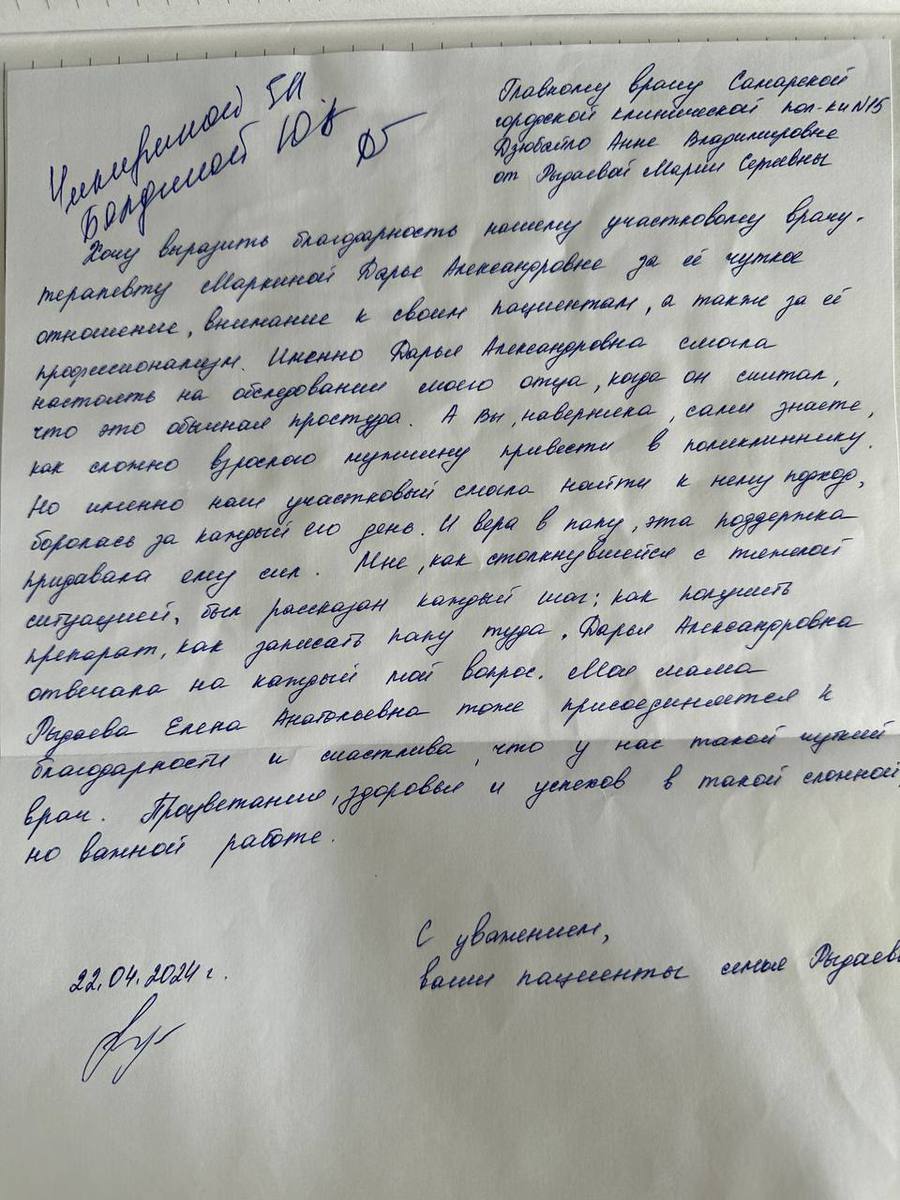 Главному врачу Самарской
городской клинической пол-ки N15
Дзюбайло Анне Владимировне
от Рыдаевой Марии Сергевны
Болдиной Ю.В
Хочу выразить благодарность нашему участковому врачу-
терапевту Маркиной Дарье Александровне за её чуткое
отношение, внимание к своим пациентам, а также за её
профессионализм. Именно Дарья Александровна смогла
настоять на обследовании моего отца, когда он считал,
что это обычная простуда. А Вы, наверняка, сами знаете,
как сложно взрослого мужчину привести в поликлинику.
Но именно наш участковый смогла найти к нему подход,
боролась за каждый его день. И вера в папу, эта поддержка
придавала ему сил. Мне, как столкнувшейся с тяжелой
ситуацией, был рассказан каждый шаг: как получить
препарат, как записать папу туда. Дарья Александровна
отвечала на каждый мой вопрос. Моя мама
Рыдаева Елена Анатольевна тоже присоединяется к
благодарности и счастлива, что у нас такой чуткий
врач. Процветания, здоровья и успехов в такой сложной,
но важной работе.
С уважением,
ваши пациенты семья Рыдаевы
22.04.2024 г.